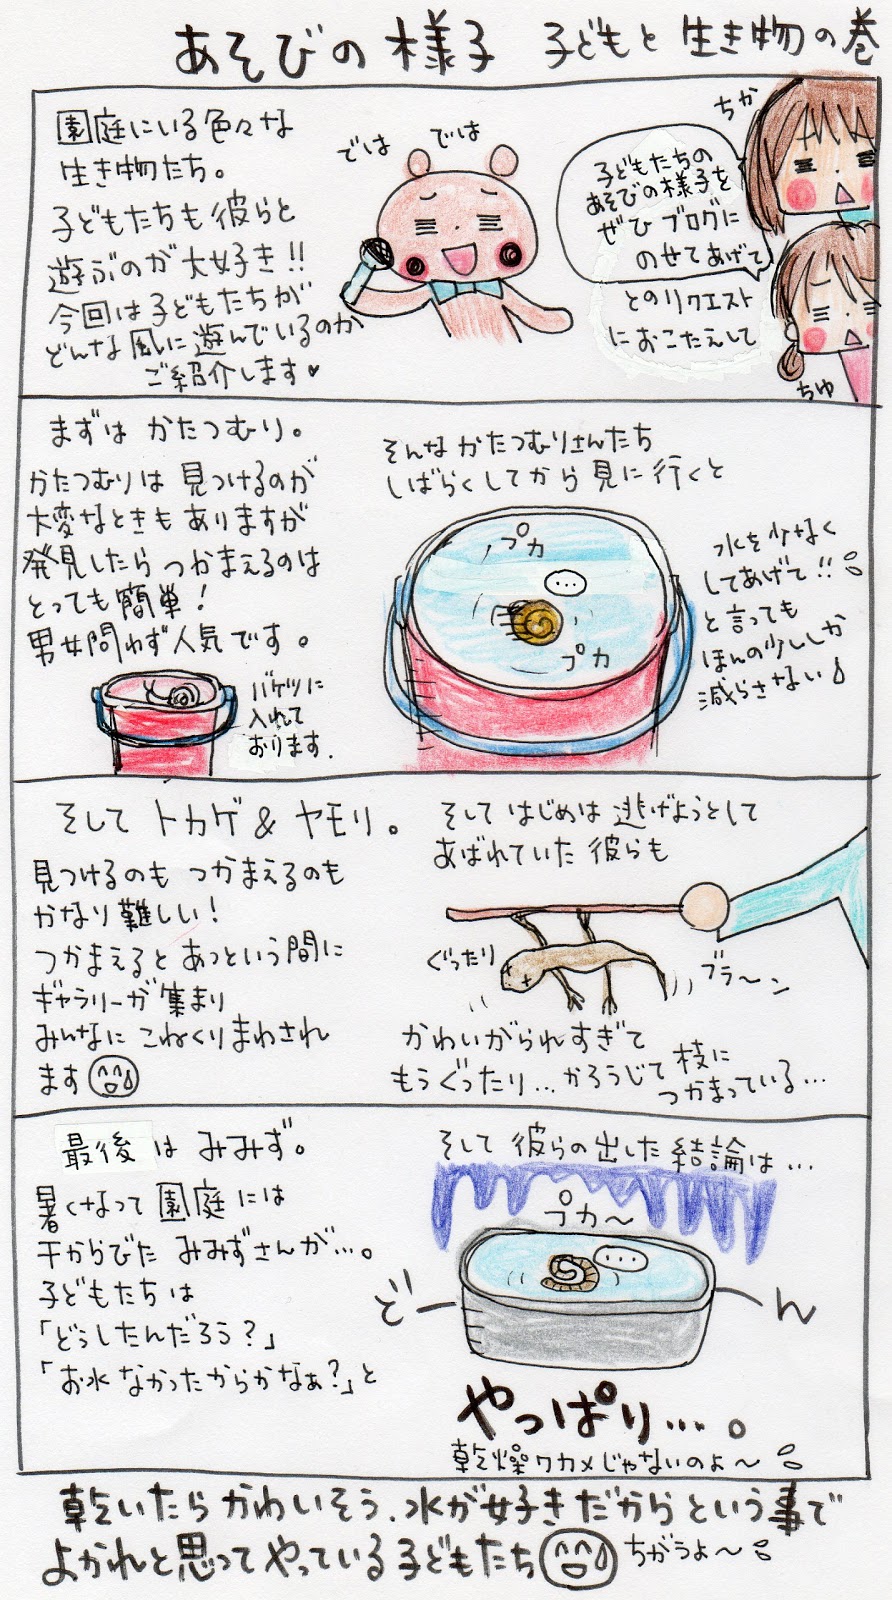 あそびの様子 子どもと生き物の巻
園庭にいる色々な
生き物たち。
子どもたちも彼らと
遊ぶのが大好き!!
今回は子どもたちが
どんな風に遊んでいるのか
ご紹介します♥
では では
ちか
子どもたちの
あそびの様子を
ぜひ ブログに
のせてあげて
とのリクエスト
におこたえして
ちゆ
まずは かたつむり。
かたつむりは 見つけるのが
大変なときも ありますが
発見したら つかまえるのは
とっても簡単!
男女問わず人気です。
バケツに
入れて
おります.
そんな かたつむりさんたち
しばらくしてから 見に行くと
プカ
...
プカ
水を少なく
してあげて!!
と言っても
ほんの少ししか
減らさない
そして トカゲ & ヤモリ。
見つけるのも つかまえるのも
かなり難しい!
つかまえると あっという間に
ギャラリーが 集まり
みんなに こねくりまわされ
ます
そして はじめは 逃げようとして
あばれていた 彼らも
ぐったり
ブラ〜ン
かわいがられすぎて
もう ぐったり... かろうじて 枝に
つかまっている...
最後は みみず。
暑くなって 園庭には
干からびた みみずさんが...。
子どもたちは
「どぅしたんだろう?」
「お水 なかったからかなぁ?」と
そして 彼らの出した 結論は...
プカ〜
...
どーーん
やっぱり...。
乾燥ワカメじゃないのよ〜
乾いたら かわいそう、水が好きだからという事で
よかれと思ってやっている子どもたち ちがうよ〜